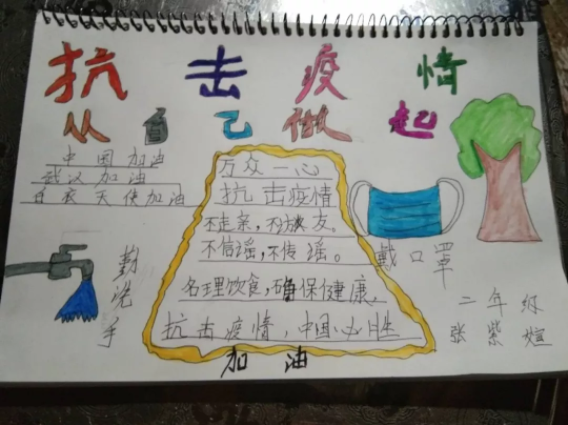 抗击疫情
从自己做起
中国加油
武汉加油
白衣天使加油
万众一心
抗击疫情
不走亲，不访友。
不信谣，不传谣。
名理饮食，确保健康。
抗击疫情，中国必胜
加油
勤洗手
戴口罩
二年级
张紫煊